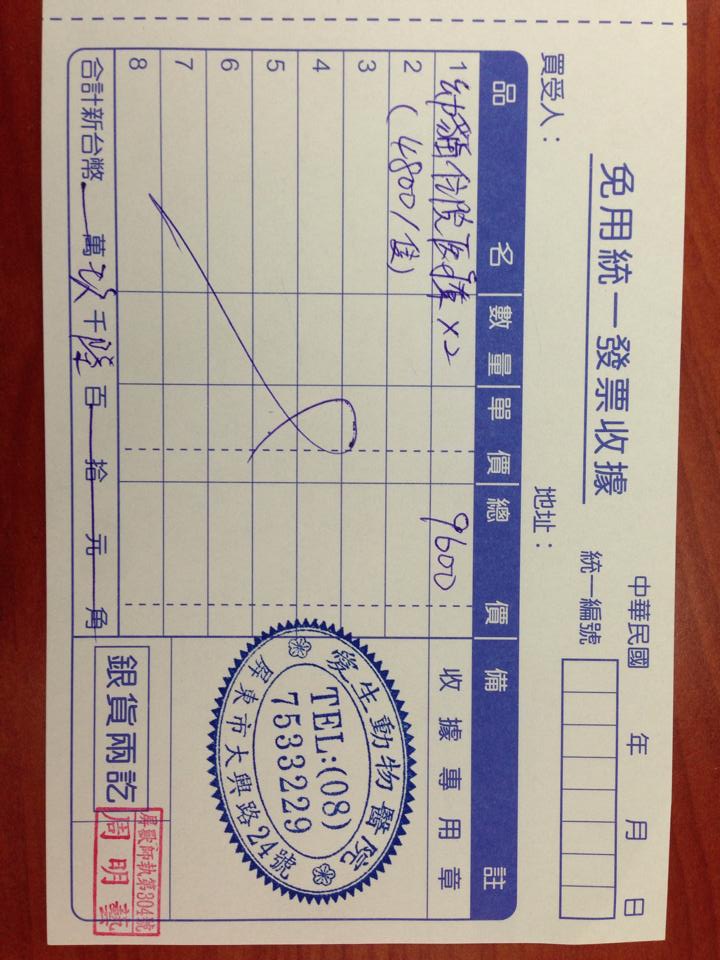 免用統一發票收據
中華民國 年 月 日
統一編號
買受人： 地址：
品名 數量 單價 總價 備註
1 幼貓住院醫療 ×2 9600 收據專用章
2 (4800/隻)
3
4
5
6
7
8
合計新台幣 萬玖千陸百 拾 元 角
銀貨兩訖
愛生動物醫院
TEL:(08)
7533229
屏東市大興路24號
屏獸師執第304號
周明藝